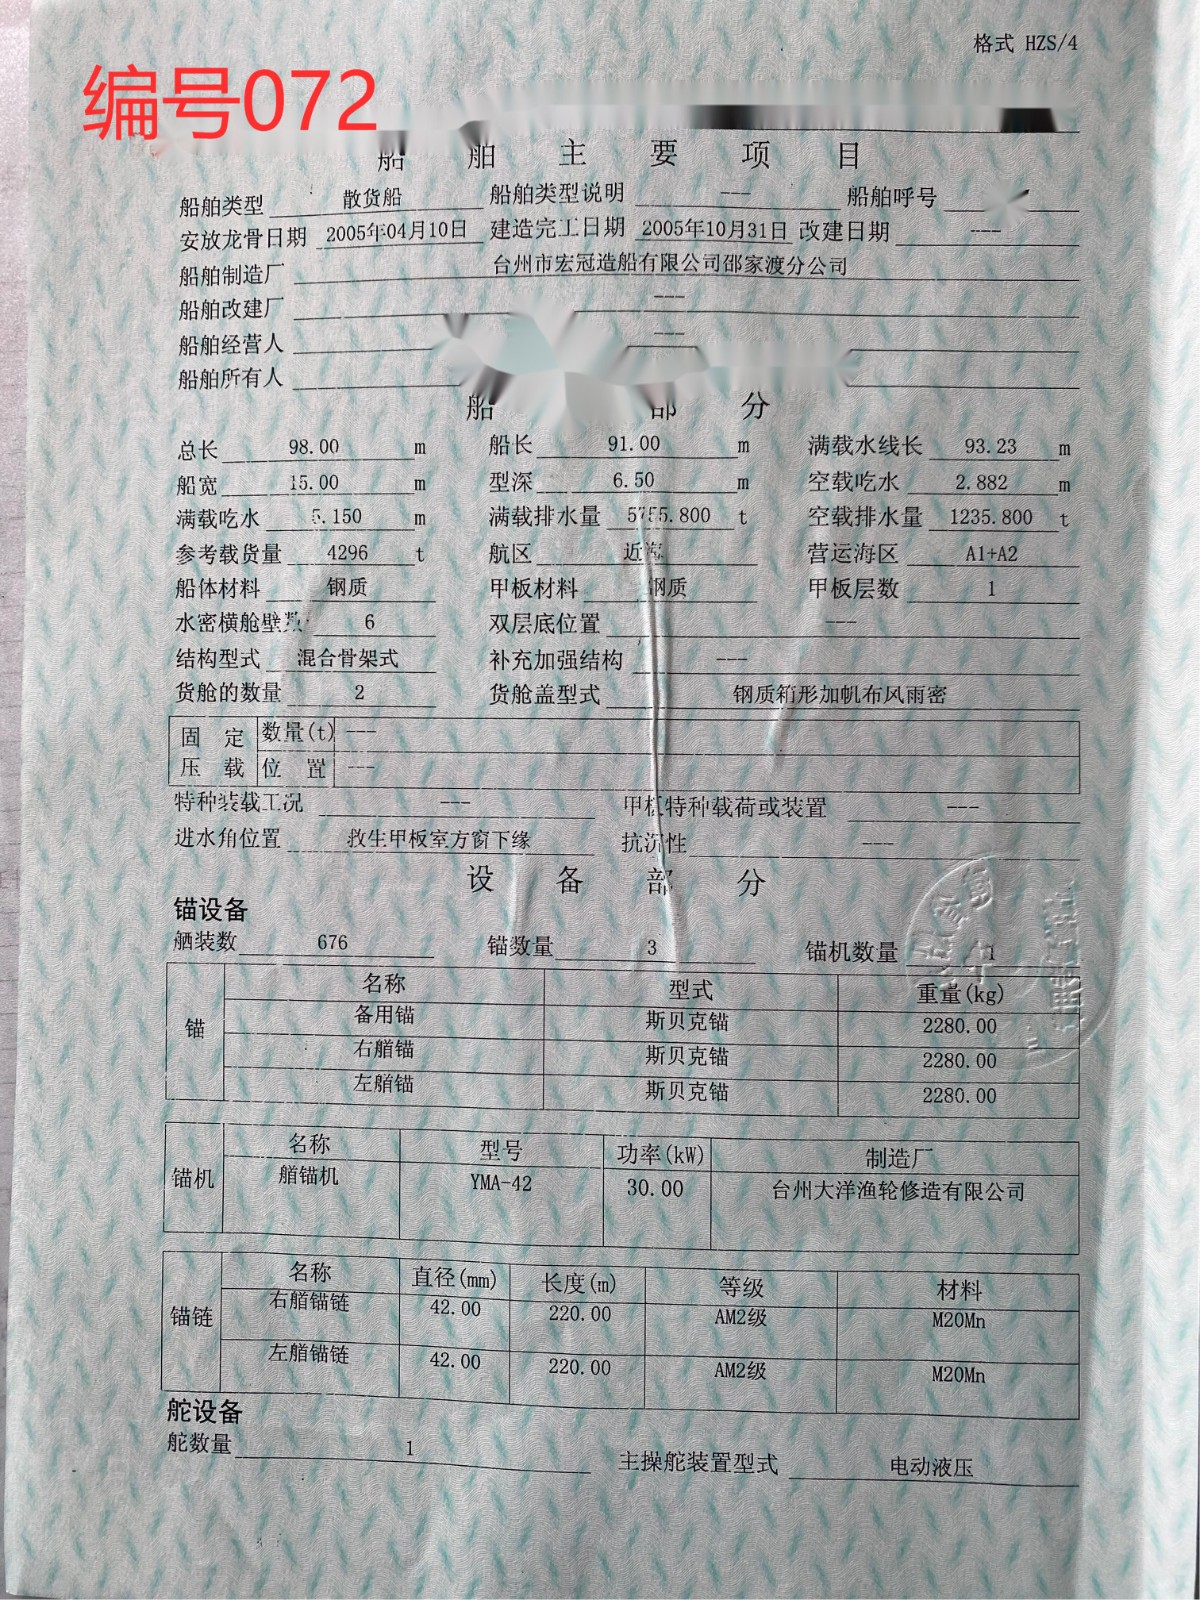 格式 HZS/4
编号072
船 舶 主 要 项 目
船舶类型 散货船 船舶类型说明 --- 船舶呼号
安放龙骨日期 2005年04月10日 建造完工日期 2005年10月31日 改建日期 ---
船舶制造厂 台州市宏冠造船有限公司邵家渡分公司
船舶改建厂 ---
船舶经营人 ---
船舶所有人
船 部 分
总长 98.00 m 船长 91.00 m 满载水线长 93.23 m
船宽 15.00 m 型深 6.50 m 空载吃水 2.882 m
满载吃水 5.150 m 满载排水量 5755.800 t 空载排水量 1235.800 t
参考载货量 4296 t 航区 近海 营运海区 A1+A2
船体材料 钢质 甲板材料 钢质 甲板层数 1
水密横舱壁数 6 双层底位置 ---
结构型式 混合骨架式 补充加强结构 ---
货舱的数量 2 货舱盖型式 钢质箱形加帆布风雨密
固 定 数量(t) ---
压 载 位 置 ---
特种装载工况 --- 甲板特种载荷或装置 ---
进水角位置 救生甲板室方窗下缘 抗沉性 ---
设 备 部 分
锚设备
舾装数 676 锚数量 3 锚机数量 1
锚 名称 型式 重量(kg)
备用锚 斯贝克锚 2280.00
右艏锚 斯贝克锚 2280.00
左艏锚 斯贝克锚 2280.00
锚机 名称 型号 功率(kW) 制造厂
艏锚机 YMA-42 30.00 台州大洋渔轮修造有限公司
锚链 名称 直径(mm) 长度(m) 等级 材料
右艏锚链 42.00 220.00 AM2级 M20Mn
左艏锚链 42.00 220.00 AM2级 M20Mn
舵设备
舵数量 1 主操舵装置型式 电动液压